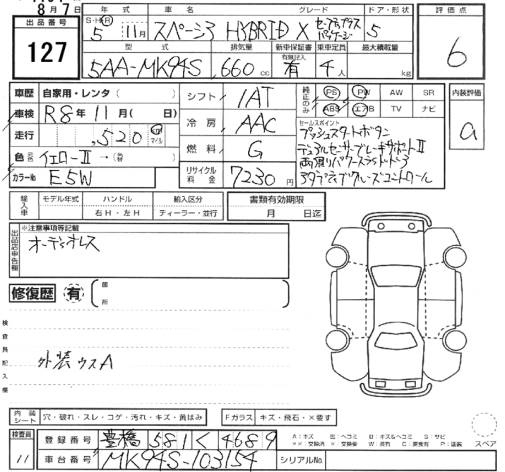 8月7日
出品番号
127
年式 車名 グレード ドア・形状
S・H・R 5 11月 スペーシア HYBRID X セーフティプラスパッケージ 5
型式 排気量 新車保証書 乗車定員 最大積載量
有無記入
5AA-MK94S 660 cc 有 4人 kg
評価点
6
内装評価
a
車歴 自家用・レンタ( )
車検 R8年11月( 日)
走行 ,520 km マイル
色 イエローⅡ→( 替)
カラーNo. E5W
シフト IAT
冷房 AAC
燃料 G
リサイクル料金 7230円
純正のみ PS PW AW SR
ABS エアB TV ナビ
セールスポイント
プッシュスタートボタン
デュアルセンサーブレーキサポートⅡ
両側パワースライドドア
アダプティブクルーズコントロール
輸入車 モデル年式 ハンドル 輸入区分
右H・左H ディーラー・並行
書類有効期限
月 日迄
出品店申告欄
※注意事項等記載
オーディオレス
修復歴 有 部所
検査員記入欄
外装ウスA
内装シート 穴・破れ・スレ・コゲ・汚れ・キズ・黄ばみ
Fガラス キズ・飛石・×要す
検査員
11
登録番号 豊橋 581 く 4689
車台番号 MK94S-103154 シリアルNo.
A:キズ U:ヘコミ B:キズ&ヘコミ S:サビ
スペア